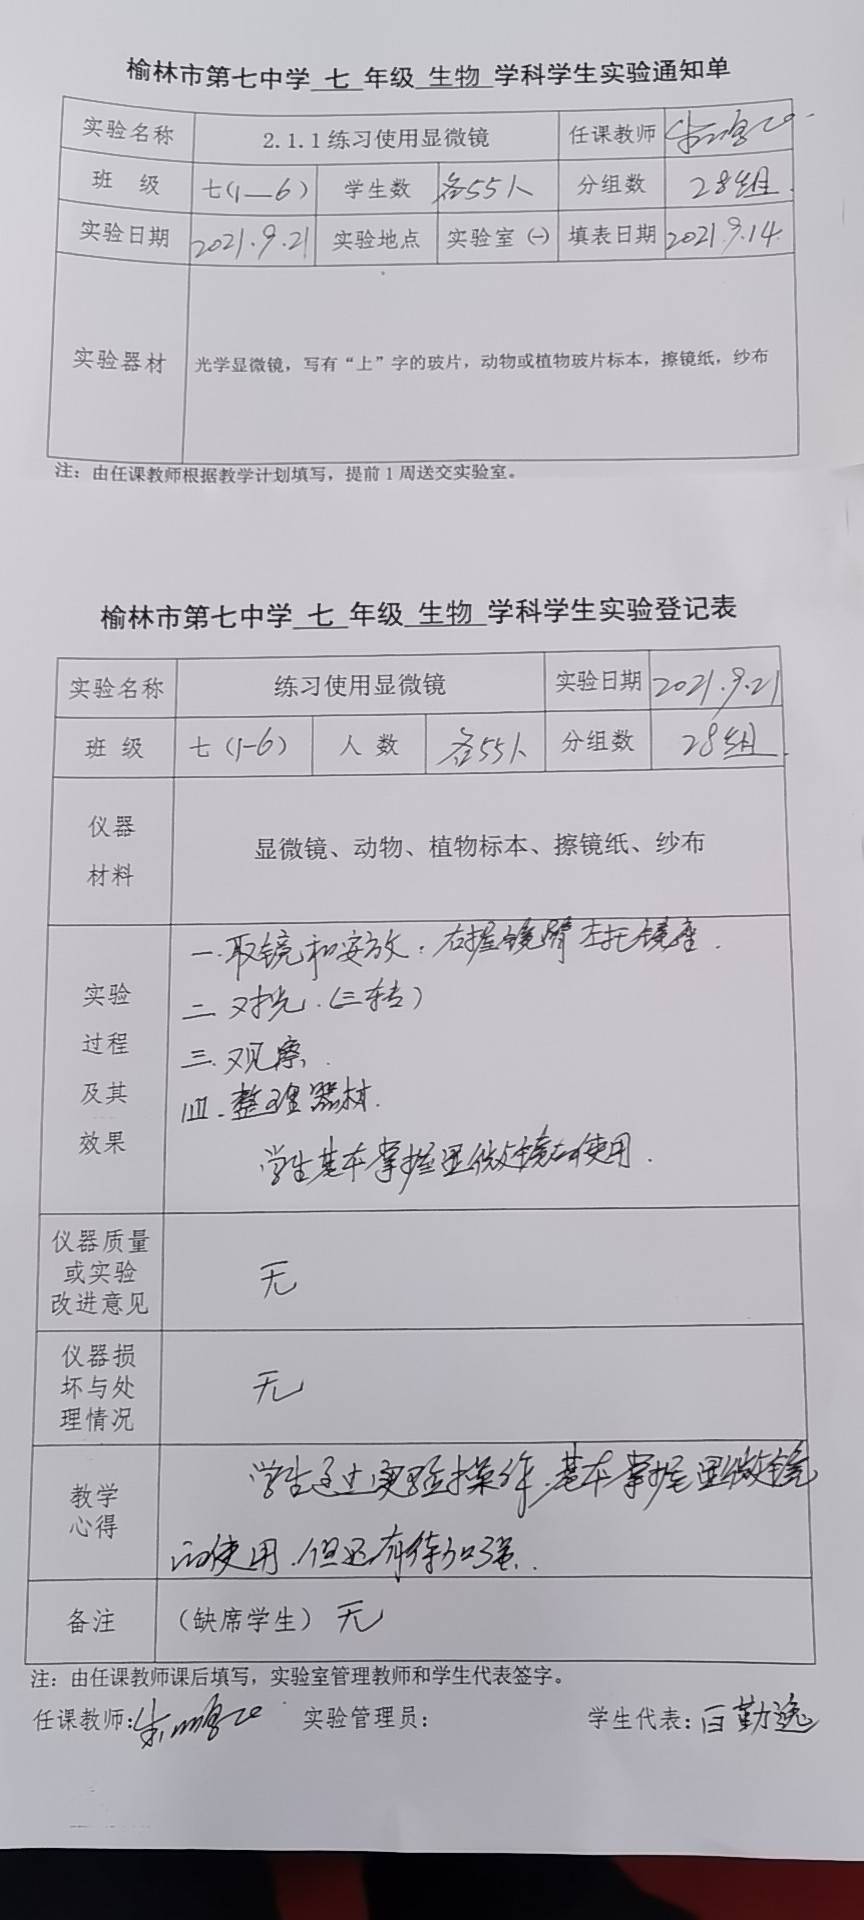 榆林市第七中学 七 年级 生物 学科学生实验通知单
实验名称 2.1.1练习使用显微镜 任课教师
班 级 七(1—6) 学生数 各55人 分组数 28组.
实验日期 2021.9.21 实验地点 实验室(一) 填表日期 2021.9.14.
实验器材 光学显微镜，写有“上”字的玻片，动物或植物玻片标本，擦镜纸，纱布
注：由任课教师根据教学计划填写，提前1周送交实验室。
榆林市第七中学 七 年级 生物 学科学生实验登记表
实验名称 练习使用显微镜 实验日期 2021.9.21
班 级 七(1-6) 人 数 各55人 分组数 28组.
仪器
材料
显微镜、动物、植物标本、擦镜纸、纱布
实验
过程
及其
效果
一.取镜和安放：右握镜臂左托镜座.
二.对光.(三转)
三.观察.
四.整理器材.
学生基本掌握显微镜的使用.
仪器质量
或实验
改进意见
无
仪器损
坏与处
理情况
无
教学
心得
学生通过实验操作.基本掌握显微镜
的使用.但还有待加强.
备注 （缺席学生）无
注：由任课教师课后填写，实验室管理教师和学生代表签字。
任课教师: 实验管理员： 学生代表：白勤逸